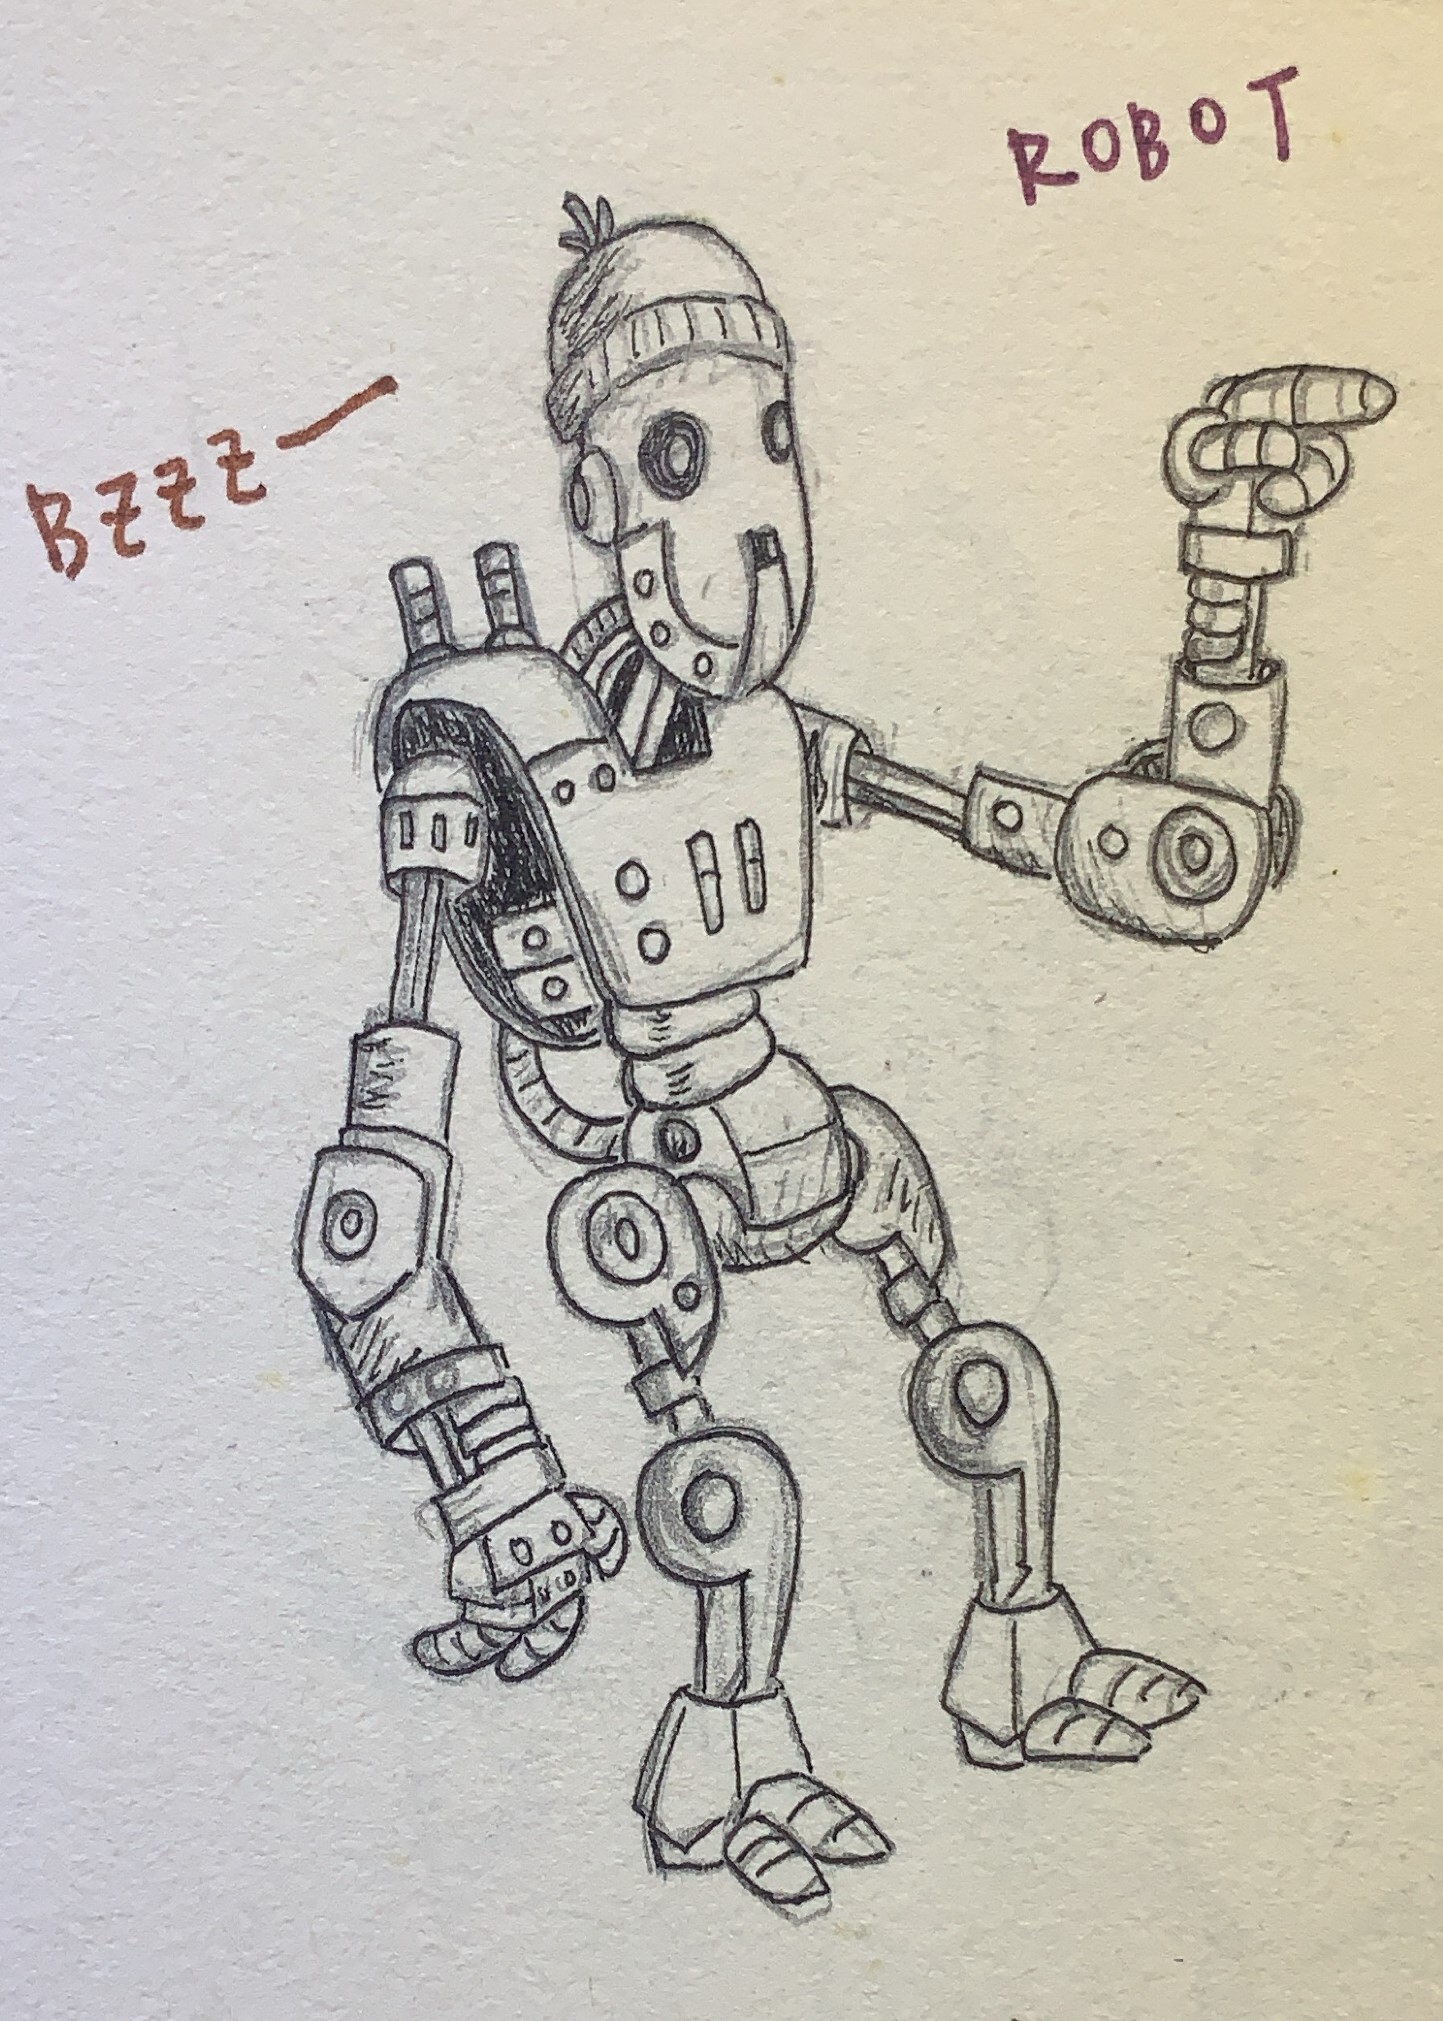 ROBOT
BZZZ—